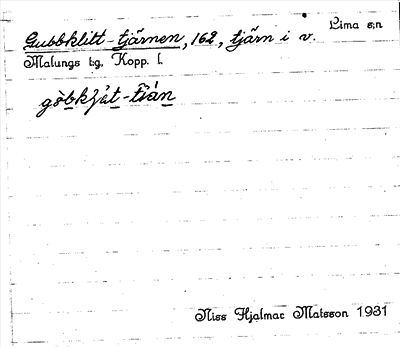 Lima s:n
Gubbklitt-tjärnen, 162, tjärn i v.
Malungs t:g, Kopp. l.
Niss Hjalmar Matsson 1931